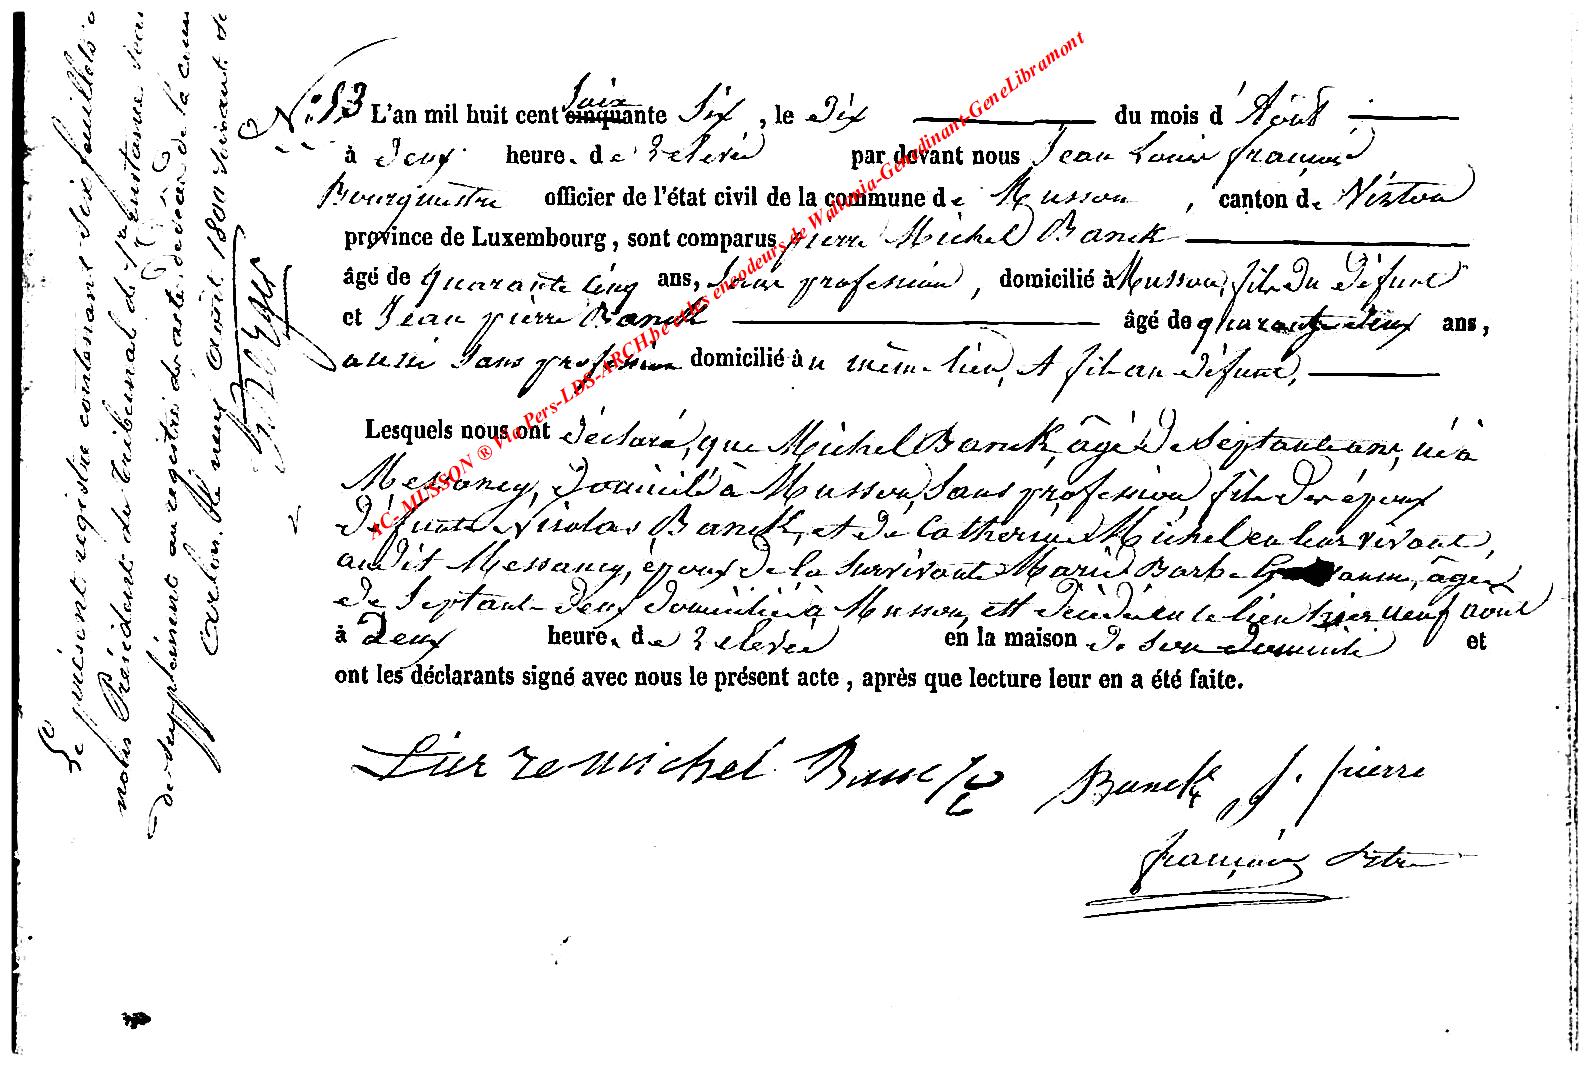 Le présent registre contenant six feuillets
nous Président du tribunal de 1re instance
de supplément au registre des actes de décès de la com
Arlon, le neuf août 1866 suivant
No. 53 L'an mil huit cent cinquante soix six, le dix du mois d'Août
à deux heure. de relevée par devant nous Jean Louis françois
Bourgmestre officier de l'état civil de la commune de Musson, canton de Virton
province de Luxembourg, sont comparus pierre Michel Banck
âgé de quarante cinq ans, sans profession, domicilié à Musson, fils du défunt
et Jean pierre Banck âgé de quarante deux ans,
aussi sans profession domicilié au même lieu, et fils au défunt,
Lesquels nous ont déclaré, que Michel Banck, âgé de septante ans, né à
Messancy, domicilié à Musson, sans profession, fils des époux
défunts Nicolas Banck, et de Catherine Michel en leur vivant,
audit Messancy, époux de la survivante Marie Barbe âgée
de septante-deux domiciliée à Musson, est décédé en ce lieu hier neuf août
à deux heure. de relevée en la maison de son domicile et
ont les déclarants signé avec nous le présent acte, après que lecture leur en a été faite.
Pierre michel Banck Banck j. pierre
françois
AC-MUSSON ® Via Pers-LDS-ARCH.be et les encodeurs de Wallonia-Genedinant-GeneLibramont